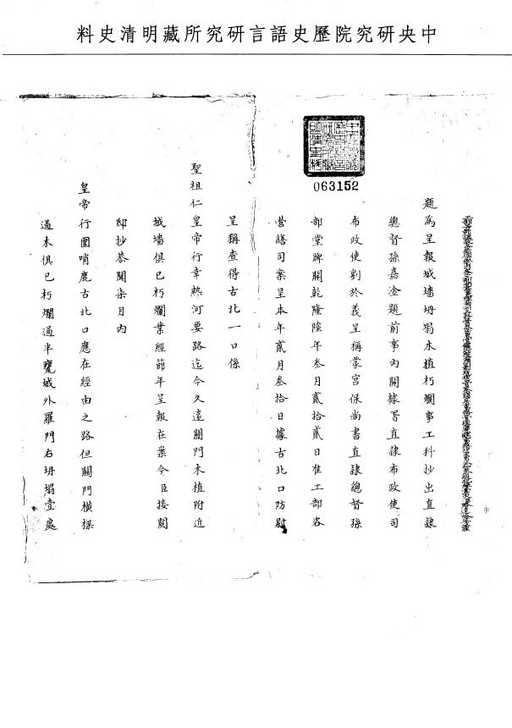 中央研究院歷史語言研究所藏明清史料
063152
題為呈報城墻坍塌木植朽爛事工科抄出直隸
總督孫嘉淦題前事內開據署直隸布政使司
布政使剴於義呈稱蒙宮保尚書直隸總督孫
部堂牌開乾隆陸年叁月貳拾貳日准工部咨
營繕司案呈本年貳月叁拾日據古北口防尉
呈稱查得古北一口係
聖祖仁皇帝行幸熱河要路迄今久遠關門木植附近
城墻俱已朽爛業經節年呈報在案今臣接閱
邸抄恭聞柒月內
皇帝行圍哨鹿古北口應在經由之路但關門橫樑
過木俱已朽爛過半甕城外羅門右坍塌壹處